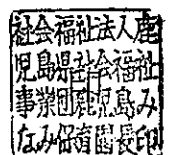 社会福祉法人鹿
児島県社会福祉
事業団鹿児島み
なみ保育園長印